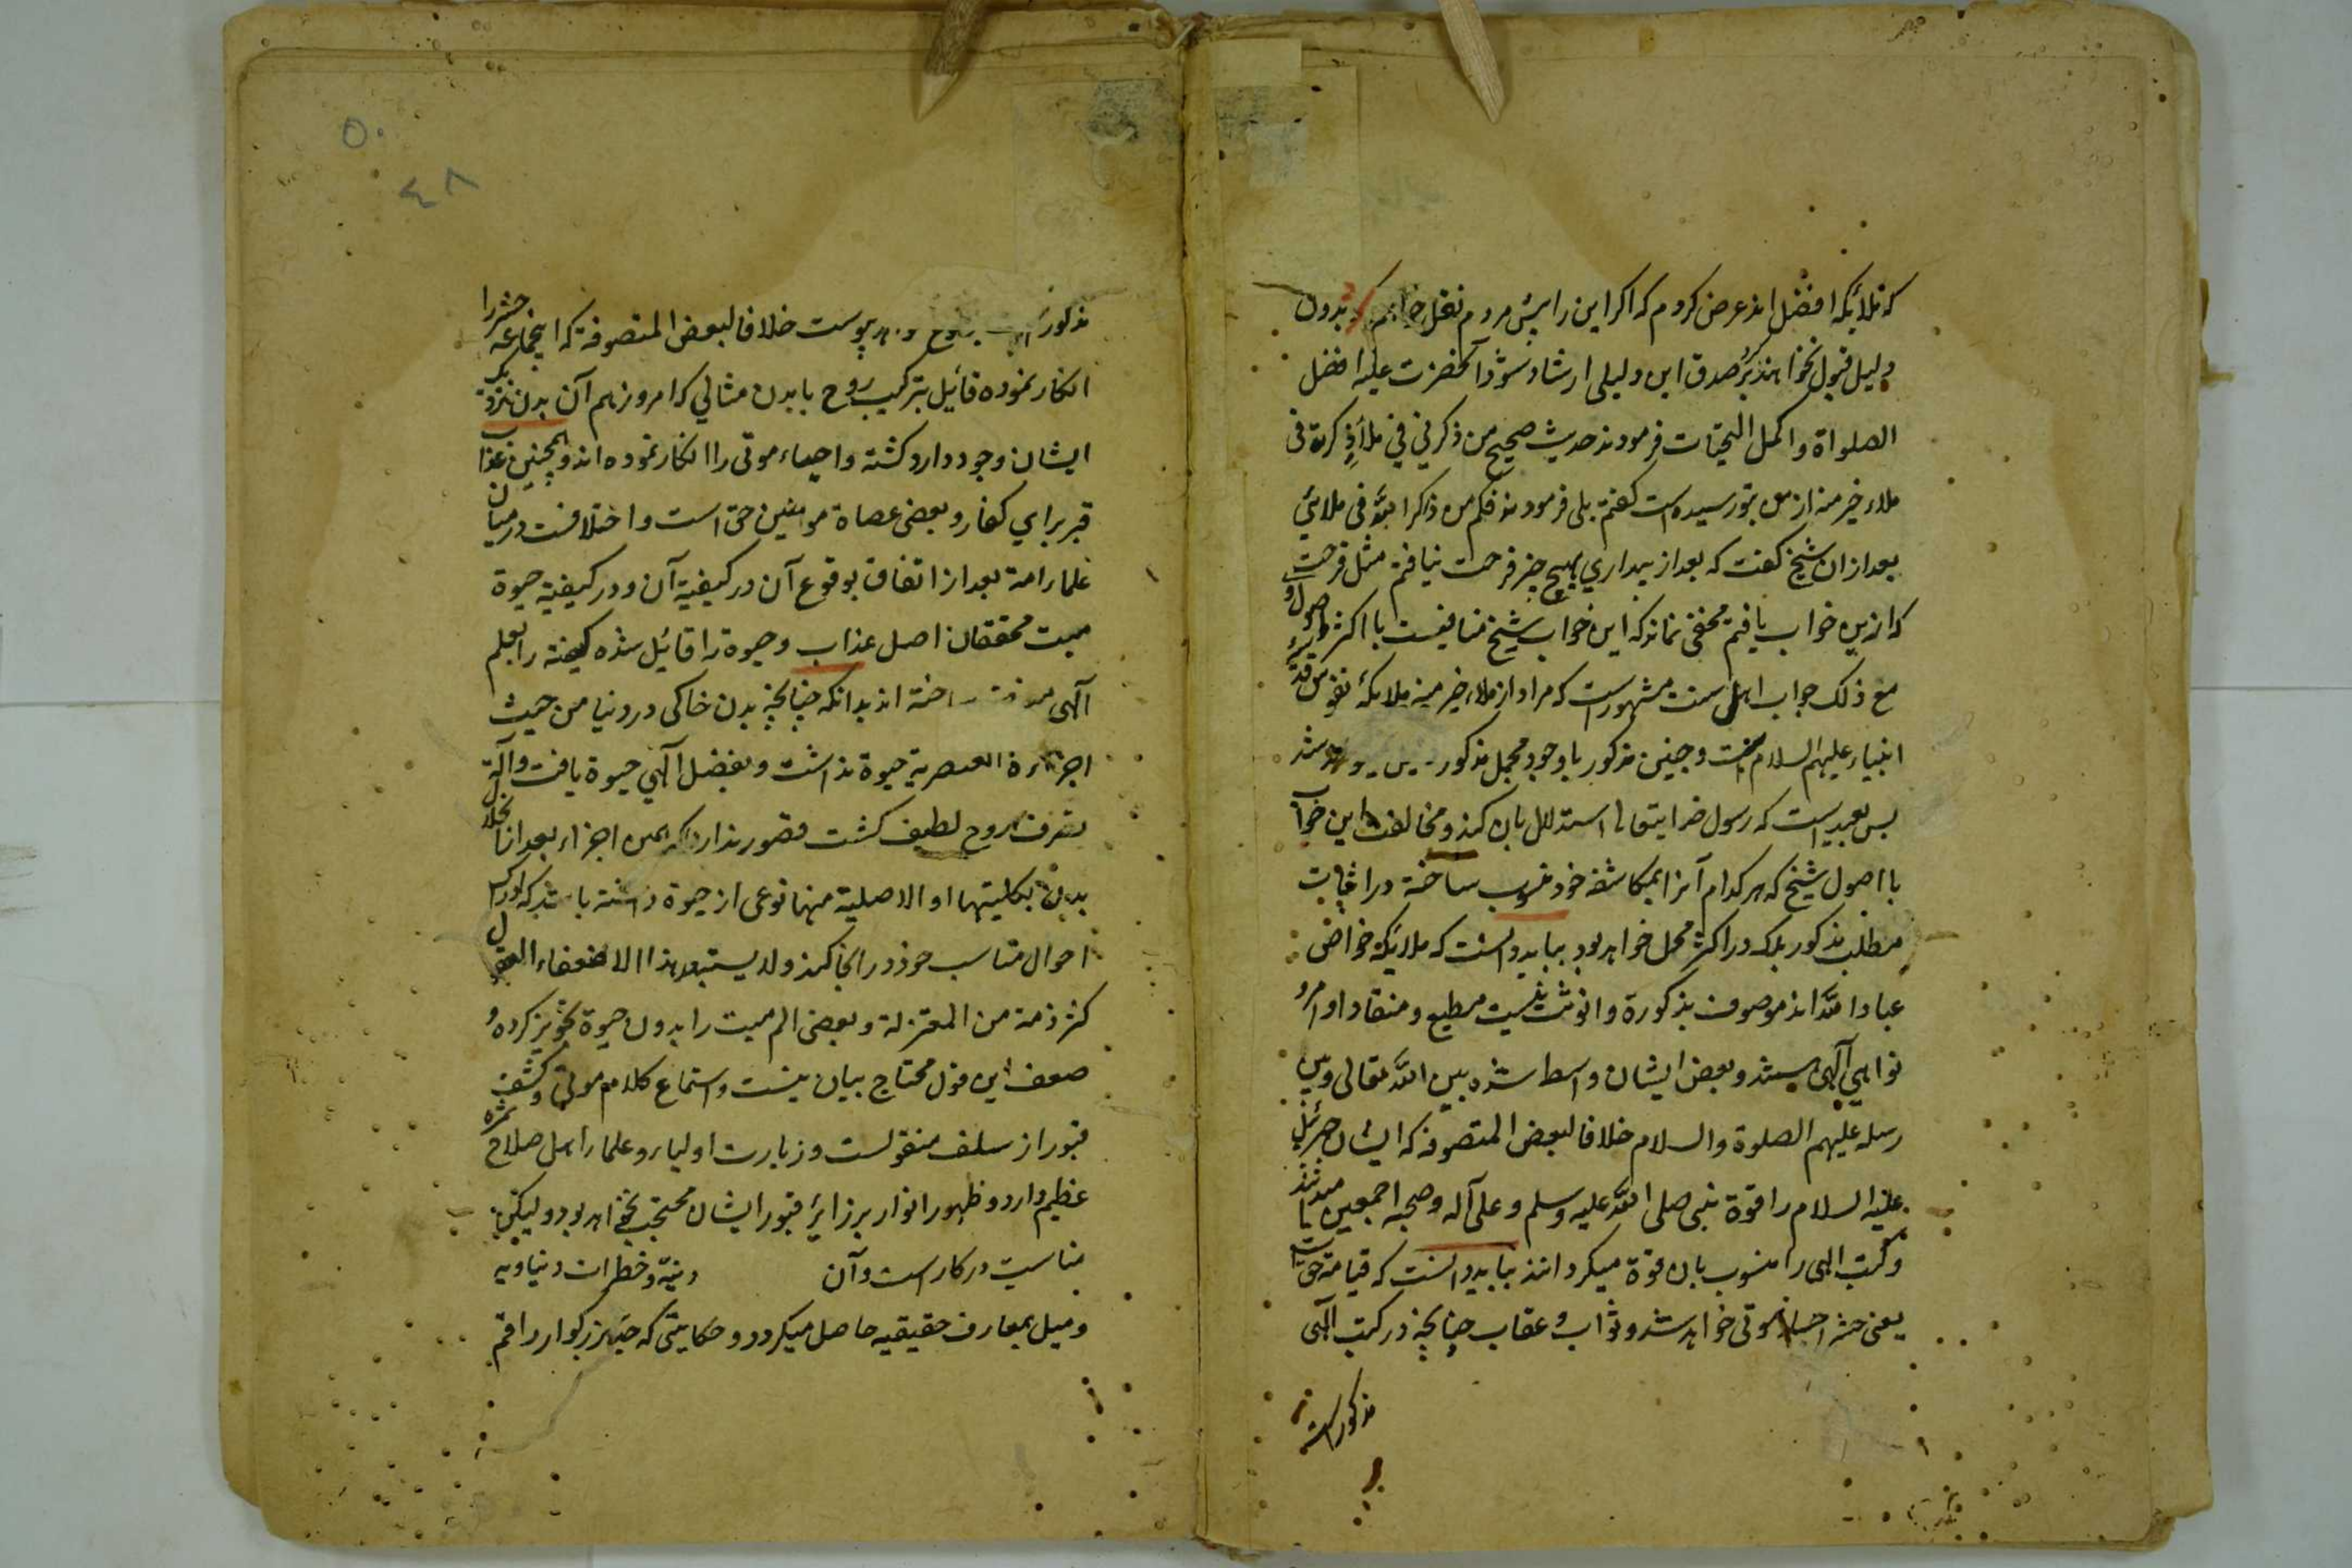 که ملائکه افضل اند عرض کردم که اکر این را پیش مردم نقل خواهم کرد بدون
دلیل قبول نخواهند کرد بر صدق این دلیلی ارشاد شود آنحضرت علیه افضل
الصلواة واکمل التحیّات فرمودند حدیث صحیح من ذکرنی فی ملأ ذکرته فی
ملاء خیر منه از من بتو رسیده است کفتم بلی فرمودند فکم من ذاکر الله فی ملائی
بعد ازان شیخ کفت که بعد از بیداری بهیچ چیز فرحت نیافتم مثل فرحت
که ازین خواب یافتم مخفی نماند که این خواب شیخ منافیست با اکثر اصول او
مع ذلک جواب اهل سنت مشهور است که مراد از ملاء خیر منه ملائکه نفوس
انبیاء علیهم السلام وچنین مذکور باوجود محمل مذکور
پس بعید است که رسول خدایتعالی استدلال بان کند ومخالفت این خواب
با اصول شیخ که هر کدام آنرا بمکاشفه خود منسوب ساخته در اثبات
مطلب مذکور بلکه در اکثر محل خواهد بود بباید دانست که ملائکة خواص
عباد الله اند موصوف بذکورة وانوثت نیست مطیع ومنقاد اوامر و
نواهی آلهی هستند وبعض ایشان واسط شده بین الله تعالی وبین
رسله علیهم الصلوة والسلام خلافا لبعض المتصوفة که ایشان جبرئیل
علیه السلام را قوة نبی صلی الله علیه وسلم وعلی آله وصحبه اجمعین میدانند
وکتب الهی را منسوب بان قوة میکردانند بباید دانست که قیامة حق است
یعنی حشر اجساد موتی خواهد شد وثواب و عقاب چنانچه در کتب آلهی
مذکور است
۵۰
۴۸
مذکور است پیوست خلافا لبعض المتصوفة که اینجماعه حشر را
انکار نموده قائیل بترکیب روح با بدن مثالی که امروز هم آن بدن نزدیک
ایشان وجود دارد کشته واحیاء موتی را انکار نموده اند وهمچنین عذاب
قبر برای کفار وبعضی عصاة مومنین حق است واختلافست درمیان
علماء امة بعد از اتفاق بوقوع آن در کیفیة آن ودر کیفیة حیوة
میت محققان اصل عذاب وحیوة را قائیل شده کیفیة را بعلم
آلهی ساخته اند بدانکه چنانچه بدن خاکی در دنیا من حیث
اجزاءه العنصریة حیوة نداشت وبفضل آلهی حیوة یافت وآلة
تصرف روح لطیف کشت قصور ندارد که همین اجزاء بعد انحلال
بدن بکلیتها او الاصلیة منها نوعی از حیوة داشته باشد که ادراک
احوال مناسب خود در انجا کند ولا یستبعد هذا الا ضعفاء العقول
کشرذمة من المعتزلة وبعضی الم میت را بدون حیوة تجویز کرده و
ضعف این قول محتاج بیان نیست واستماع کلام موتی وکشف
قبور از سلف منقولست وزیارت اولیاء وعلماء اهل صلاح ثمره
عظیم دارد وظهور انوار بر زائر قبور ایشان محتجب نخواهد بود ولیکن
مناسبت در کار است وآن دینیّة وخطرات دنیاویه
ومیل بمعارف حقیقیه حاصل میکردد وحکایتی که جد بزرکوار راقم